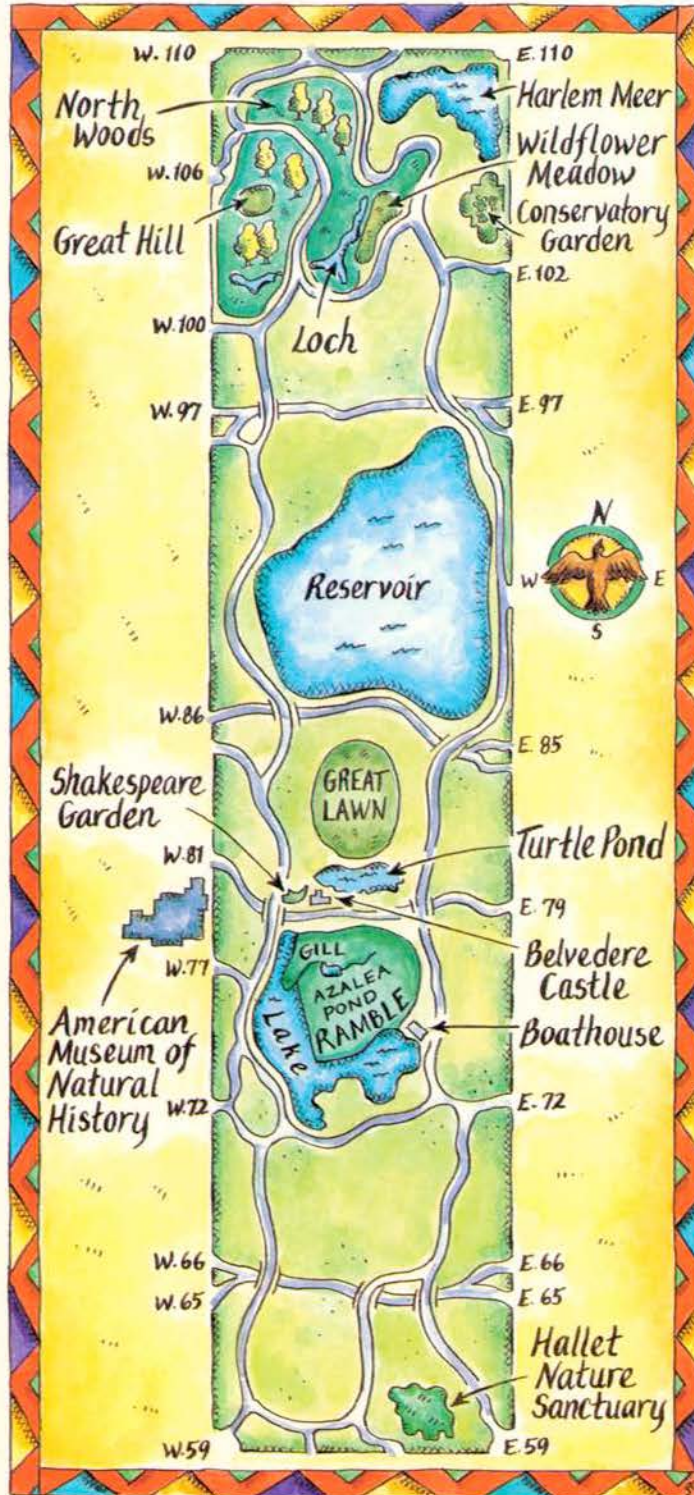 W. 110
E. 110
North
Woods
Harlem Meer
Wildflower
Meadow
W. 106
Great Hill
Conservatory
Garden
E. 102
W. 100
Loch
W. 97
E. 97
N
W
E
S
Reservoir
W. 86
E. 85
Shakespeare
Garden
GREAT
LAWN
W. 81
Turtle Pond
E. 79
Belvedere
Castle
W. 77
GILL
AZALEA
POND
RAMBLE
Lake
Boathouse
American
Museum of
Natural
History
W. 72
E. 72
W. 66
E. 66
W. 65
E. 65
Hallet
Nature
Sanctuary
W. 59
E. 59